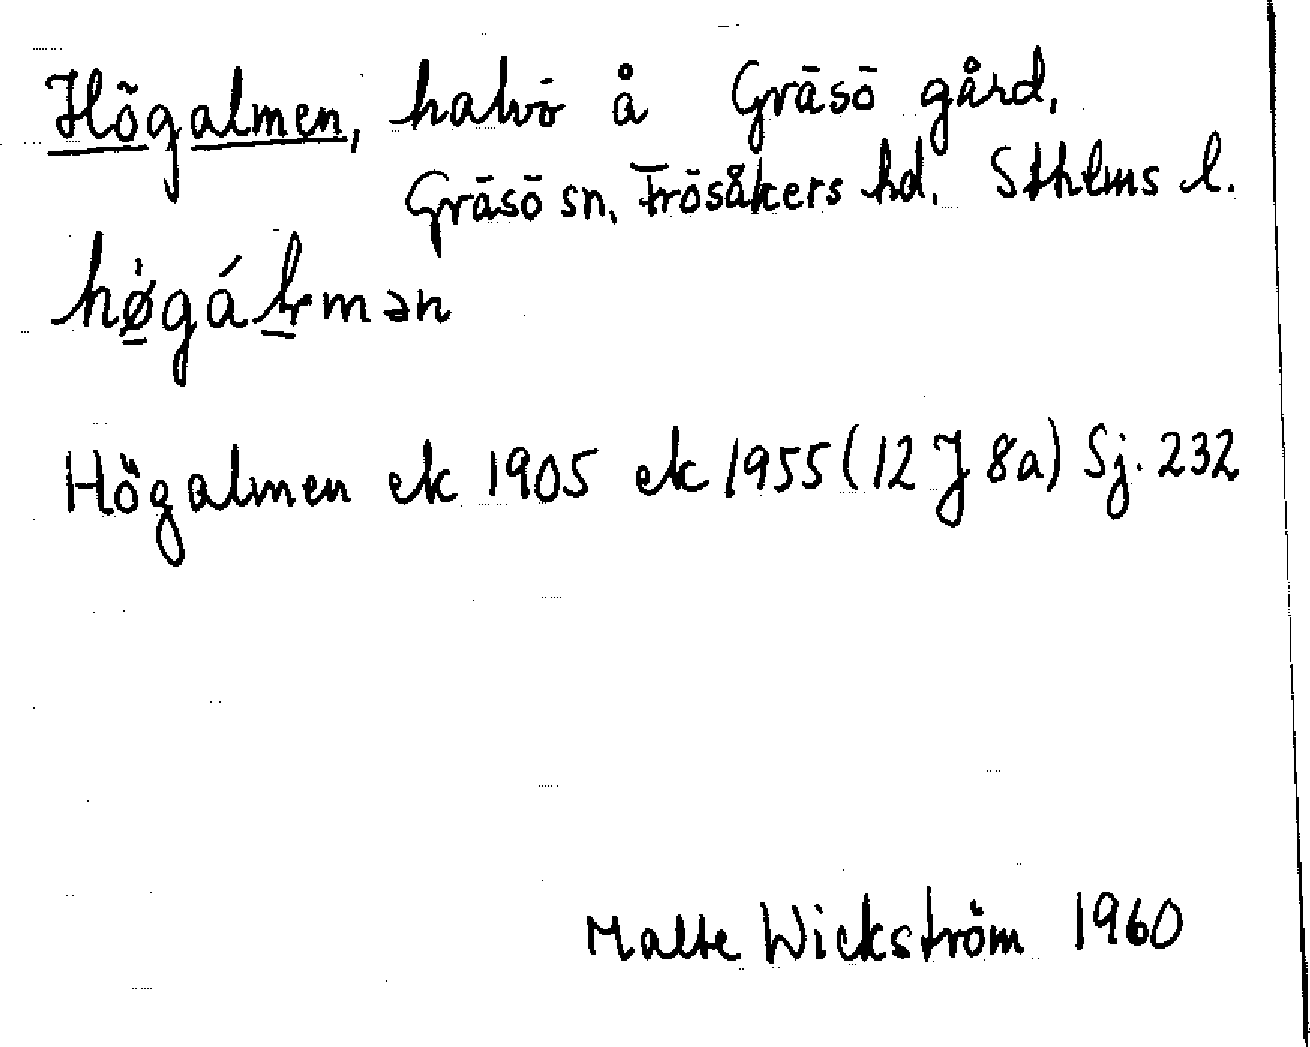 Högalmen, halvö å Gräsö gård,
Gräsö sn, Frösåkers hd. Sthlms l.
hø̀gálmən
Högalmen ek 1905 ek 1955 (12 J 8a) Sj. 232
Malte Wickström 1960